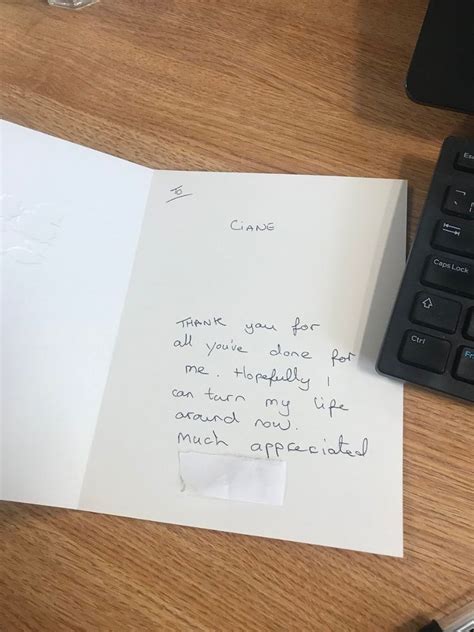 To
CIANE
THANK you for
all you've done for
me. Hopefully I
can turn my life
around now.
Much appreciated
Esc
Caps Lock
Ctrl